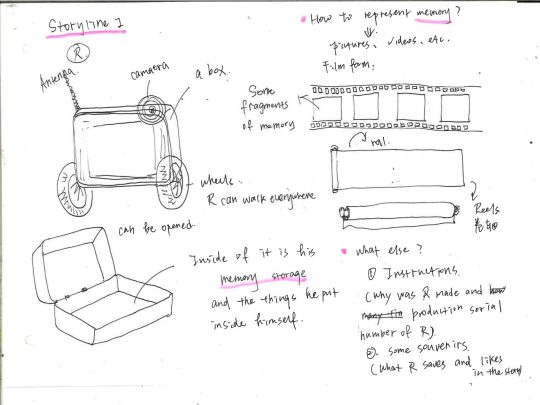 Storyline 1
R
Antenna.
camaera
a box.
wheels.
R can walk everywhere
can be opened.
Inside of it is his
memory storage
and the things he put
inside himself.
• How to represent memory?
pictures、videos、etc.
Film form.
Some
fragments
of memory
roll.
Reels
• what else?
① Instructions.
(why was R made and
production serial
number of R).
②. some souvenirs.
(what R saves and likes
in the story)